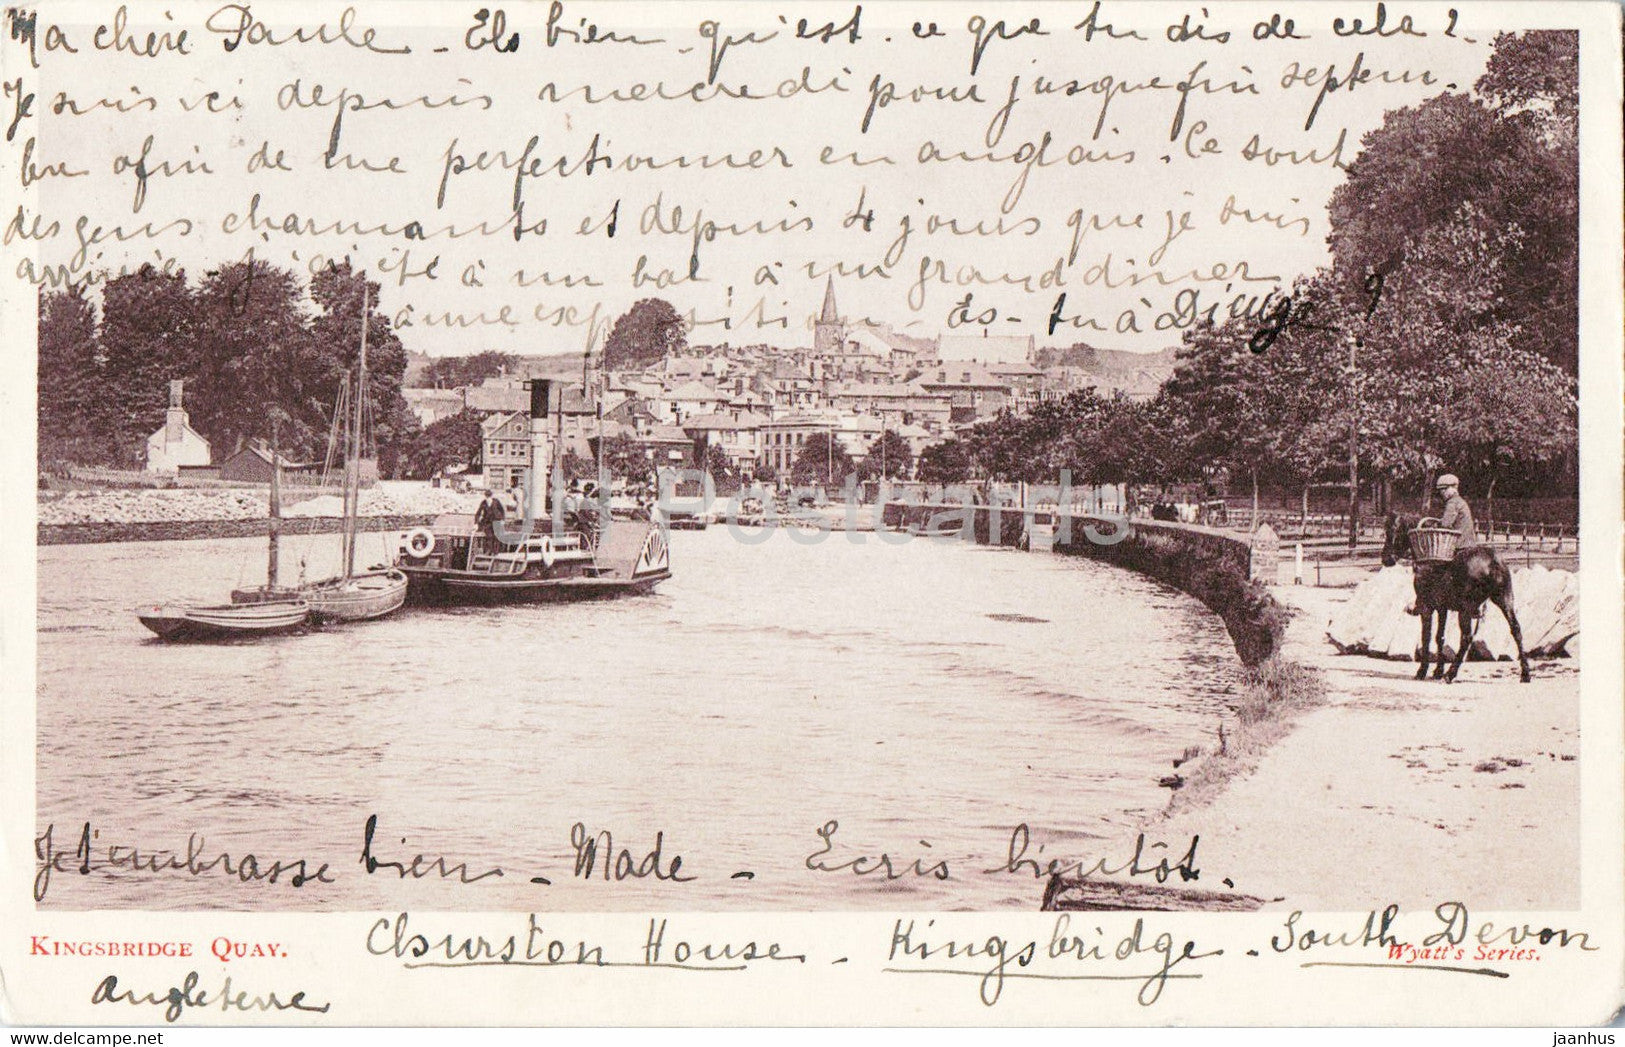 Ma chère Paule - Eh bien - qu'est. ce que tu dis de cela ?
Je suis ici depuis mercredi pour jusque fin septem
bre afin de me perfectionner en anglais. Ce sont
des gens charmants et depuis 4 jours que je suis
arrivée j'ai été à un bal, à un grand dîner
à une exposition - Es-tu à ?
JH Postcards
Je t'embrasse bien - Made - Ecris bientôt.
KINGSBRIDGE QUAY.
Churston House - Kingsbridge - South Devon
Wyatt's Series.
Angleterre
jaanhus